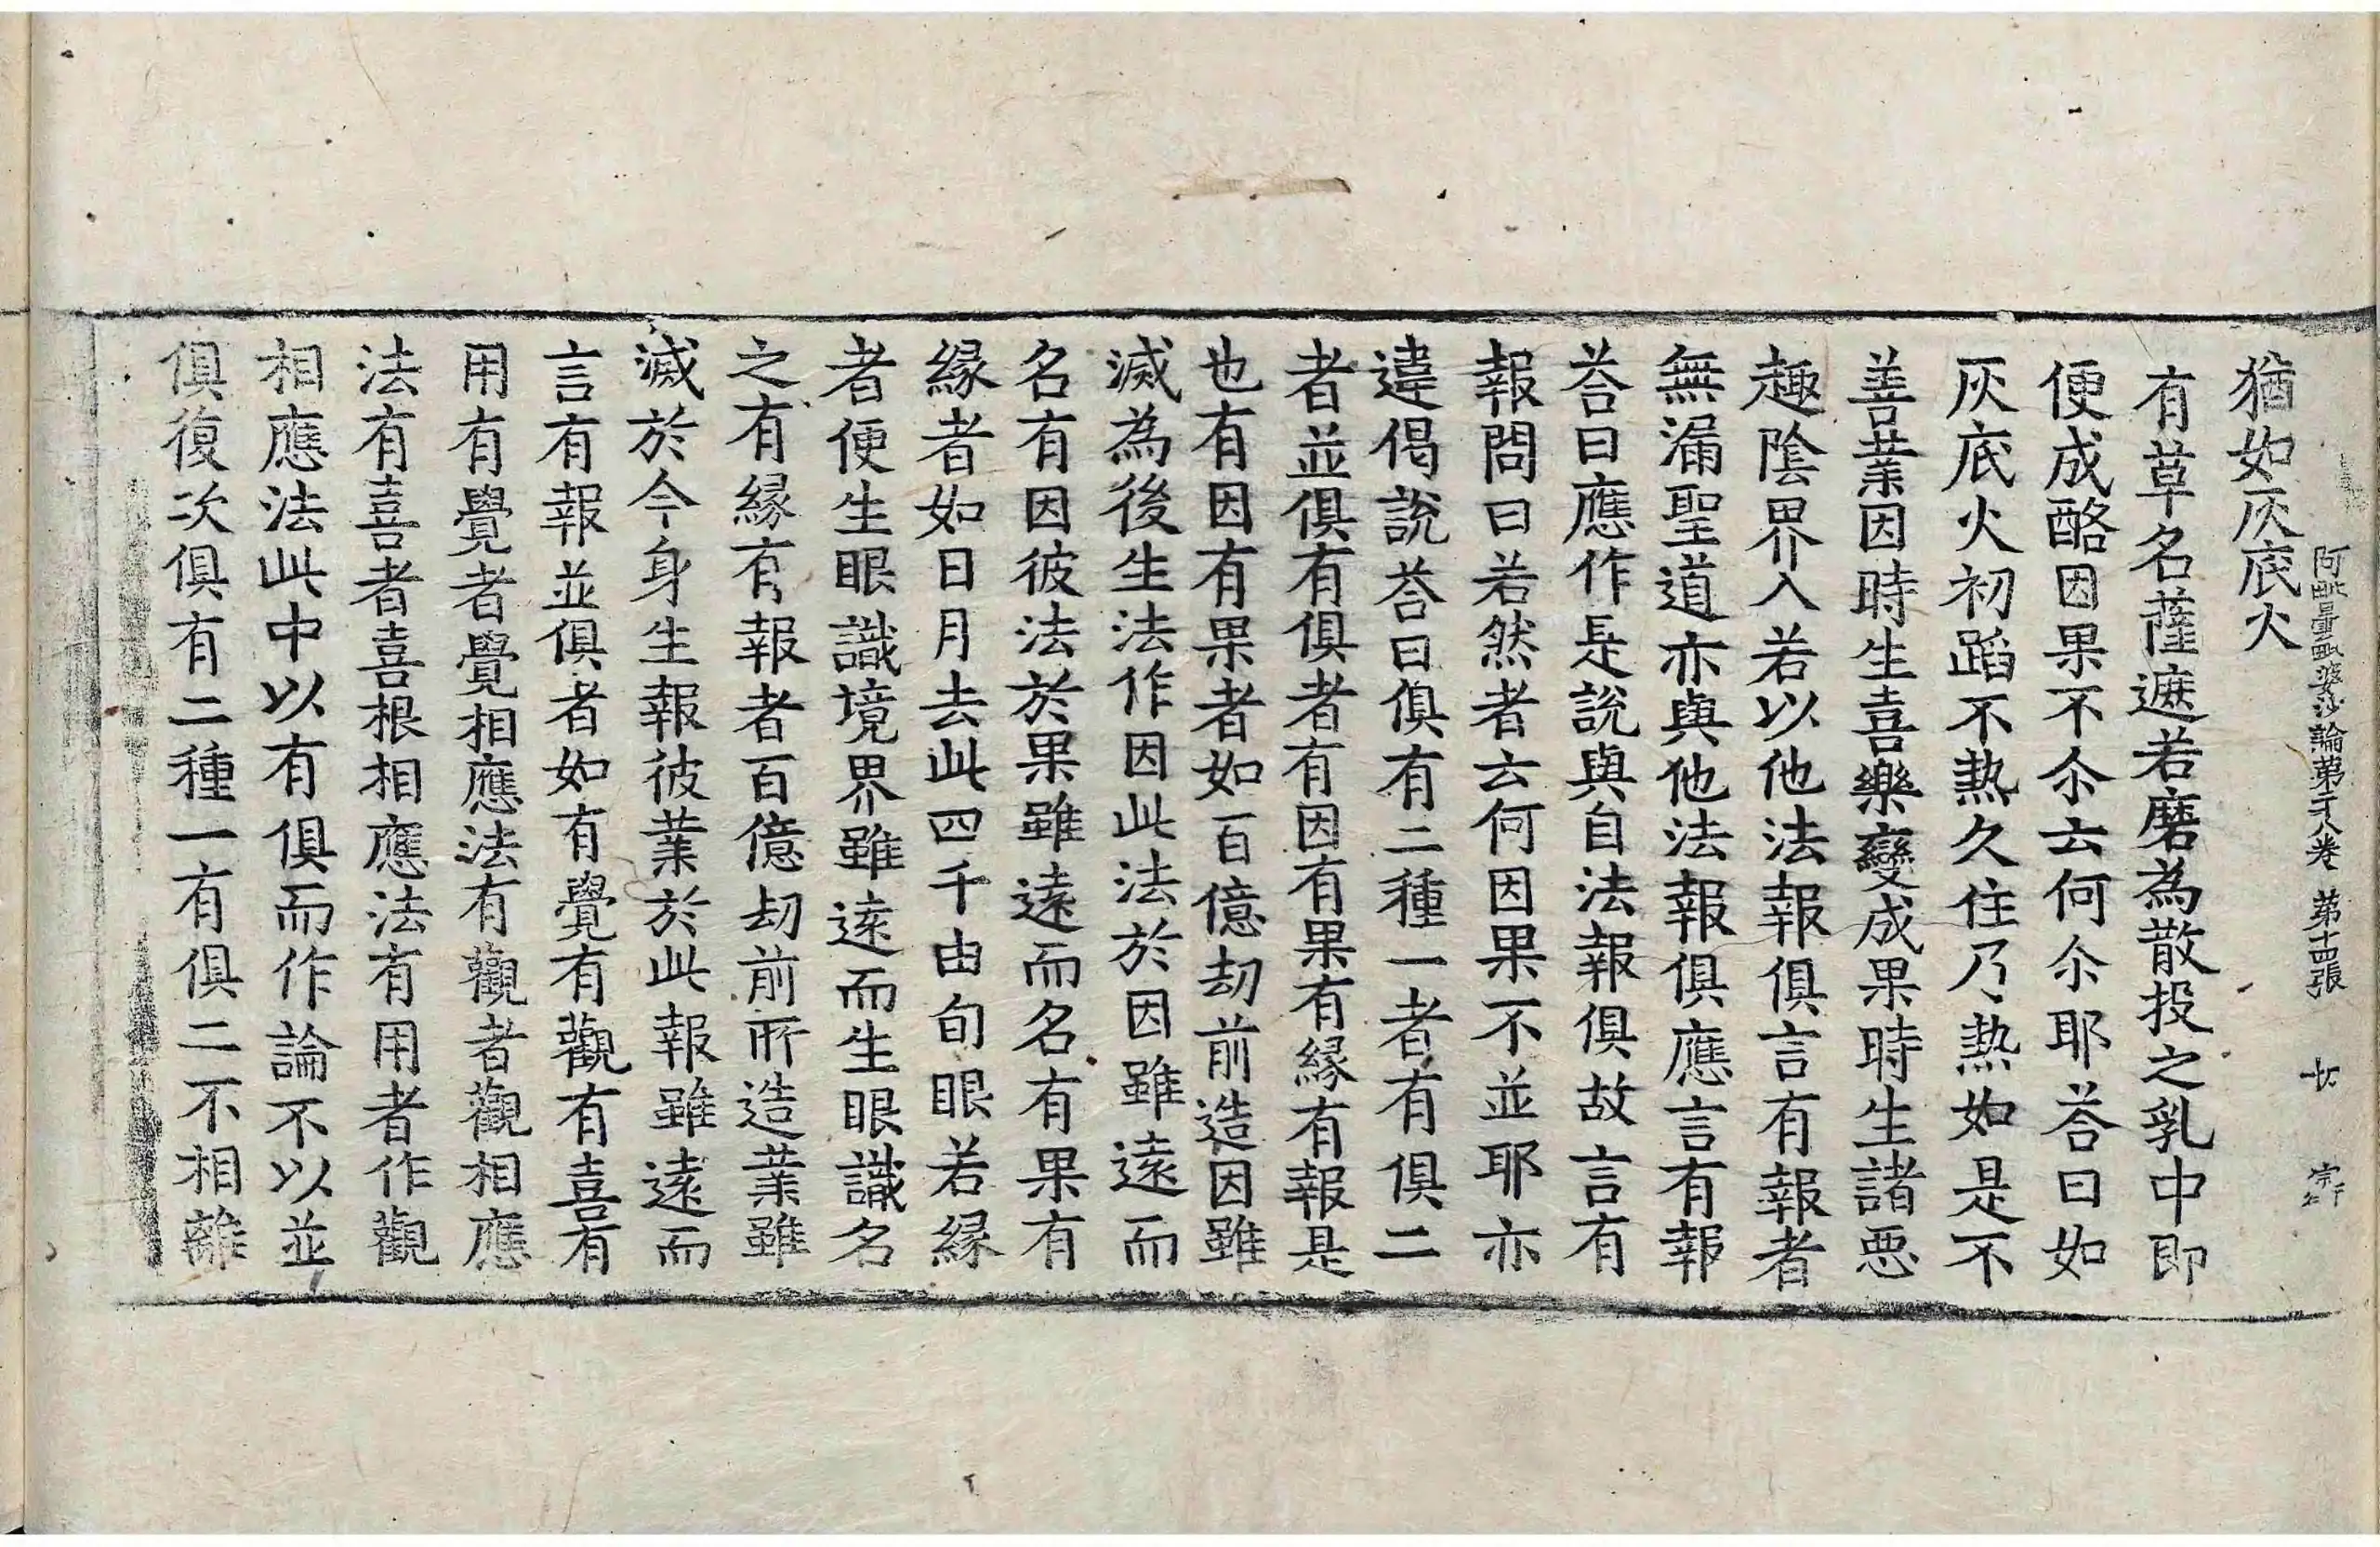 猶如灰底火
阿毗曇毗婆沙論第二十八卷　第十四張
有草名薩遮若磨為散投之乳中即
便成酪因果不尒云何尒耶荅曰如
灰底火初蹈不熱久住乃熱如是不
善業因時生喜樂變成果時生諸惡
趣陰界入若以他法報俱言有報者
無漏聖道亦與他法報俱應言有報
荅曰應作是說與自法報俱故言有
報問曰若然者云何因果不並耶亦
違偈說荅曰俱有二種一者有俱二
者並俱有俱者有因有果有緣有報是
也有因有果者如百億劫前造因雖
滅為後生法作因此法於因雖遠而
名有因彼法於果雖遠而名有果有
緣者如日月去此四千由旬眼若緣
者便生眼識境界雖遠而生眼識名
之有緣有報者百億劫前所造業雖
滅於今身生報彼業於此報雖遠而
言有報並俱者如有覺有觀有喜有
用有覺者覺相應法有觀者觀相應
法有喜者喜根相應法有用者作觀
相應法此中以有俱而作論不以並
俱復次俱有二種一有俱二不相離